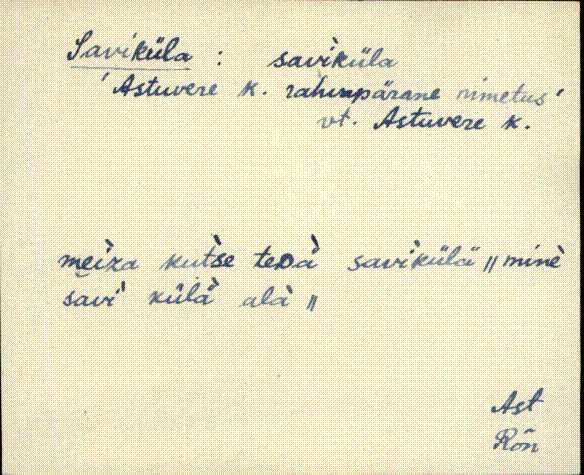 Saviküla : savìküla
'Astuvere k. rahvapärane nimetus'
vt. Astuvere k.
meìza kutse teDà savìkülä \\ minè
savì külà alà \\
Ast
Rõn